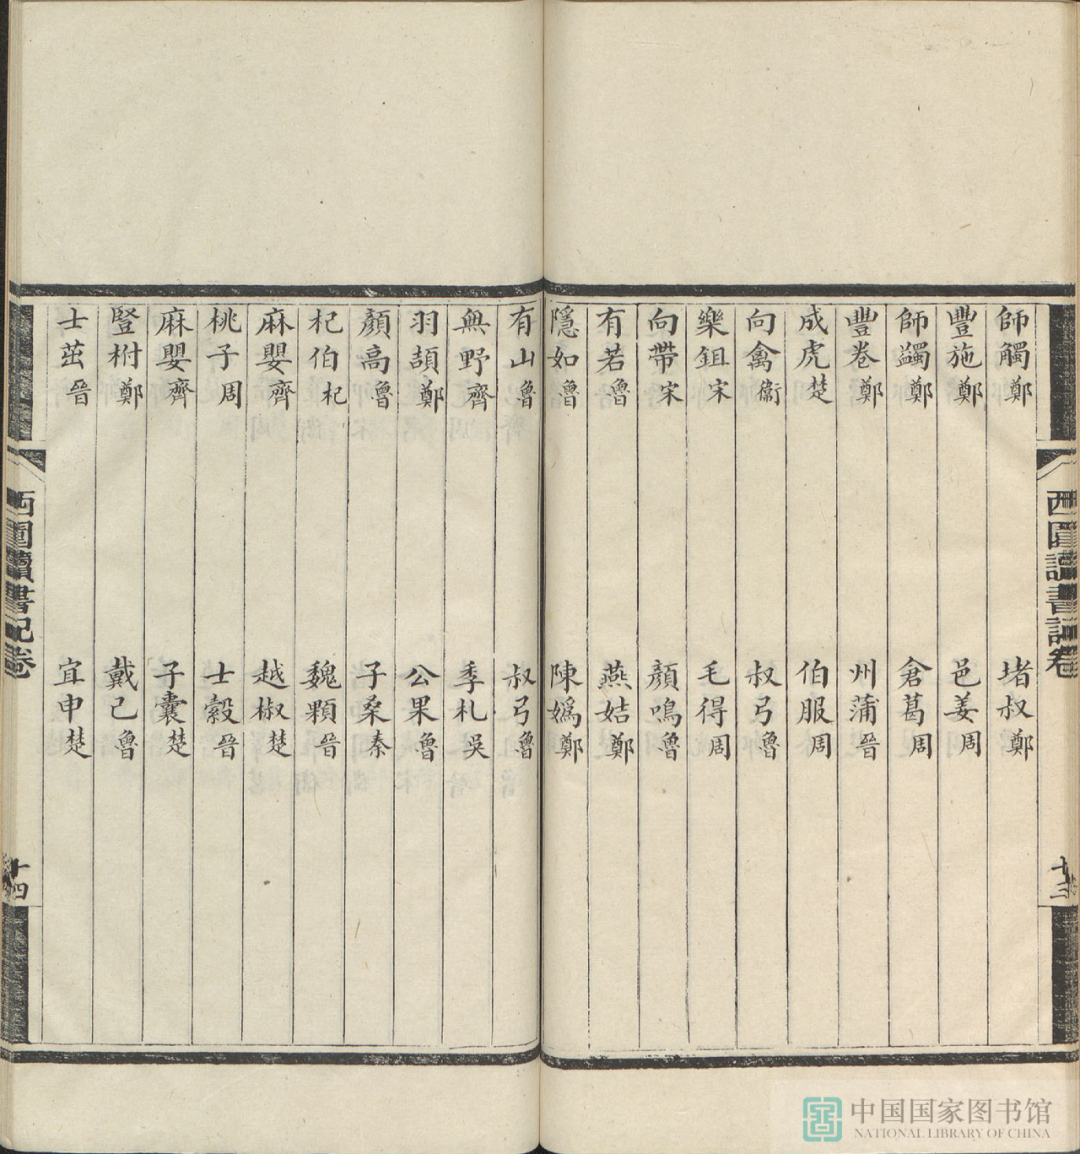 西圃讀書記卷
十三
師觸鄭 堵叔鄭
豐施鄭 邑姜周
師蠲鄭 倉葛周
豐卷鄭 州蒲晉
成虎楚 伯服周
向禽衞 叔弓魯
樂鉏宋 毛得周
向帶宋 顏鳴魯
有若魯 燕姞鄭
隱如魯 陳嬀鄭
有山魯 叔弓魯
無野齊 季札吳
羽頡鄭 公果魯
顏高魯 子桑秦
杞伯杞 魏顆晉
麻嬰齊 越椒楚
桃子周 士縠晉
麻嬰齊 子囊楚
豎柎鄭 戴己魯
士茁晉 宜申楚
西圃讀書記卷
十四
中国国家图书馆
NATIONAL LIBRARY OF CHINA